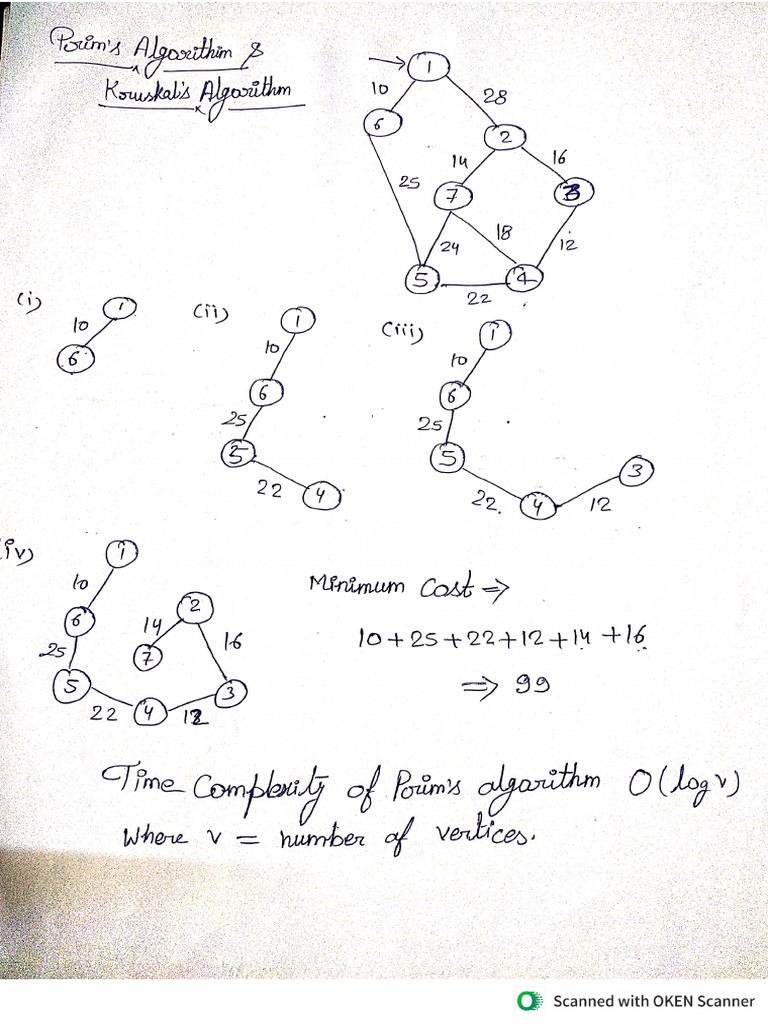 Prim's Algorithim &
Kruskal's Algorithm
1
10
28
6
2
14
16
25
7
3
18
24
12
5
4
22
(i)
1
10
6
(ii)
1
10
6
25
5
22
4
(iii)
1
10
6
25
5
3
22
4
12
(iv)
1
10
2
6
14
16
25
7
5
3
22
4
12
Minimum Cost ⇒
10+25+22+12+14+16
⇒ 99
Time Complexity of Prim's algorithm O(log v)
where v = number of vertices.
Scanned with OKEN Scanner